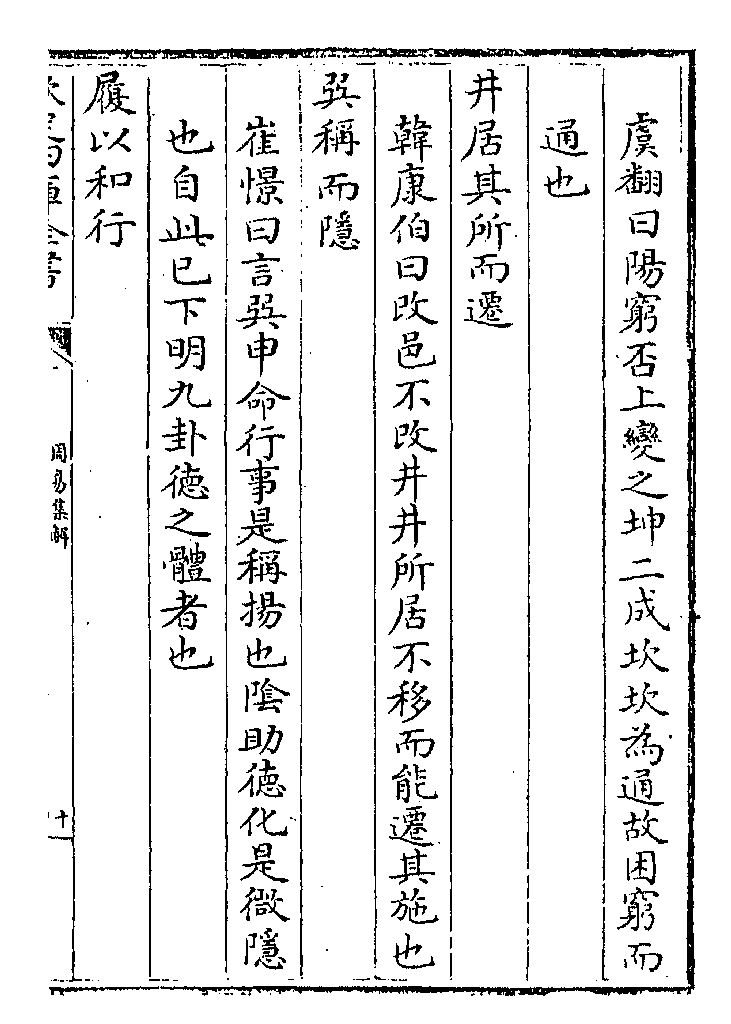 虞翻曰陽窮否上變之坤二成坎坎為通故困窮而
通也
井居其所而遷
韓康伯曰改邑不改井井所居不移而能遷其施也
巽稱而隱
崔憬曰言巽申命行事是稱揚也陰助德化是微隱
也自此已下明九卦德之體者也
履以和行
周易集解
十